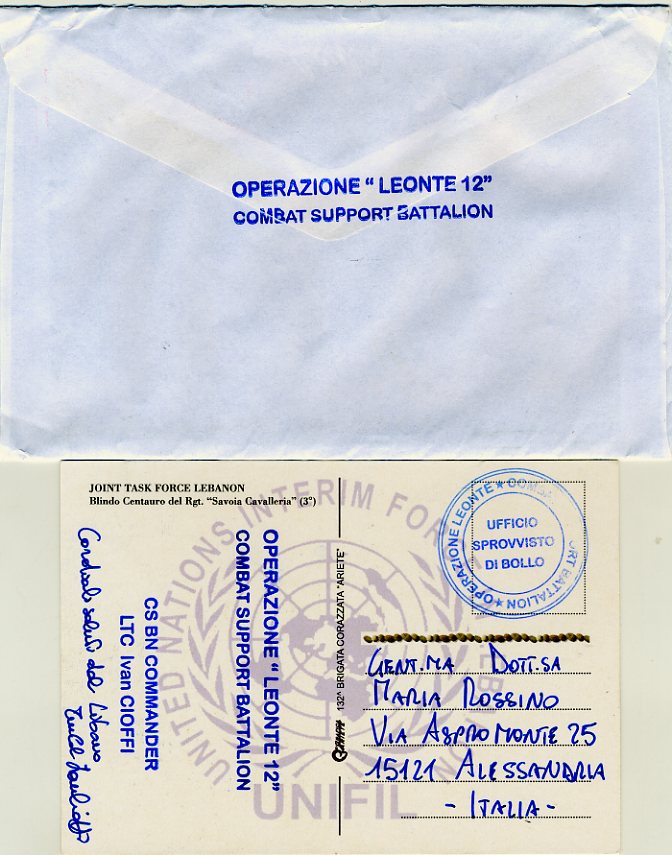 OPERAZIONE “ LEONTE 12”
COMBAT SUPPORT BATTALION
JOINT TASK FORCE LEBANON
Blindo Centauro del Rgt. “Savoia Cavalleria” (3°)
UNITED NATIONS INTERIM FOR
UNIFIL
Cordiali saluti dal Libano
CS BN COMMANDER
LTC Ivan CIOFFI
OPERAZIONE “ LEONTE 12”
COMBAT SUPPORT BATTALION
132ª BRIGATA CORAZZATA “ARIETE”
OPERAZIONE LEONTE ★ COMBA RT BATTALION ★
UFFICIO
SPROVVISTO
DI BOLLO
GENT.MA DOTT.SA
MARIA ROSSINO
VIA ASPROMONTE 25
15121 ALESSANDRIA
- ITALIA -